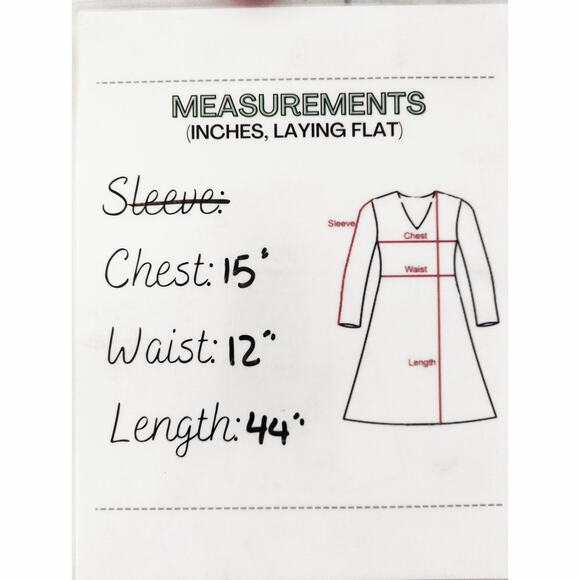 MEASUREMENTS
(INCHES, LAYING FLAT)
Sleeve:
Chest: 15"
Waist: 12"
Length: 44"
Sleeve
Chest
Waist
Length